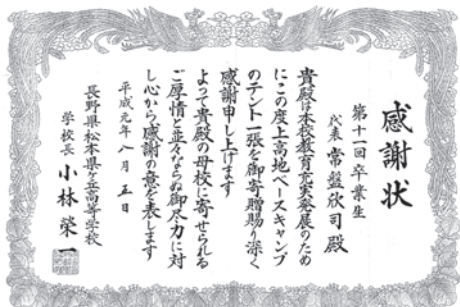 感謝状
第十一回卒業生
代表 常盤欣司殿
貴殿は本校教育充実発展のため
にこの度上高地ベースキャンプ
のテント一張を御寄贈賜り深く
感謝申し上げます
よって貴殿の母校に寄せられる
ご厚情と並々ならぬ御尽力に対
し心から感謝の意を表します
平成元年八月五日
長野県松本県ヶ丘高等学校
学校長 小林榮一